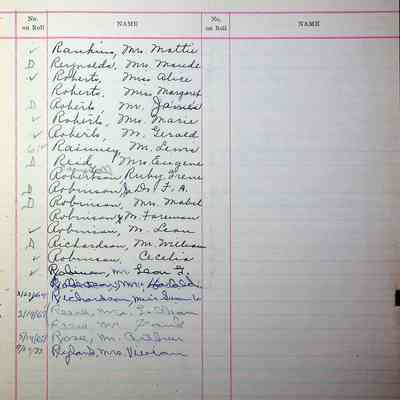 No. on Roll NAME No. on Roll NAME
✓ Rankins, Mrs. Mattie
D Reynolds, Mrs. Maude
✓ Roberts, Miss Alice
Roberts, Mrs. Margaret
D Roberts, Mr. James
✓ Roberts, Mrs. Marie
✓ Roberts, M. Gerald
Rainney, M. Lewis
D Reid, Mrs. Eugene
Robertson Ruby Irene
D Robinson, Dr. F. A.
D Robinson, Mrs. Mabel
Robinson, M. Foreman
✓ Robinson, M. Leon
D Richardson, Mr. William
✓ Robinson, Cecelia
✓ Robinson, Mr Leon
Mrs.
Richardson, Miss
Reese, Mrs.
Mr.
Ross, M.
Ryland, Mrs. Vivian